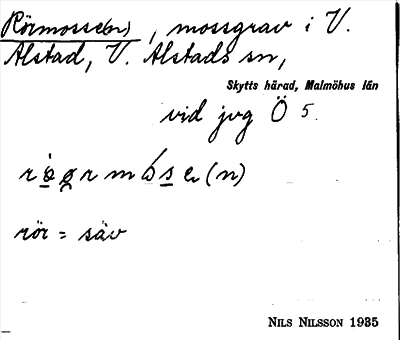 Rörmosse(n), mossgrav i V.
Alstad, V. Alstads sn,
Skytts härad, Malmöhus län
vid jvg Ö 5.
rör = säv
NILS NILSSON 1935